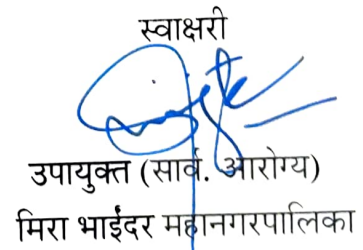 स्वाक्षरी
उपायुक्त (सार्व. आरोग्य)
मिरा भाईंदर महानगरपालिका